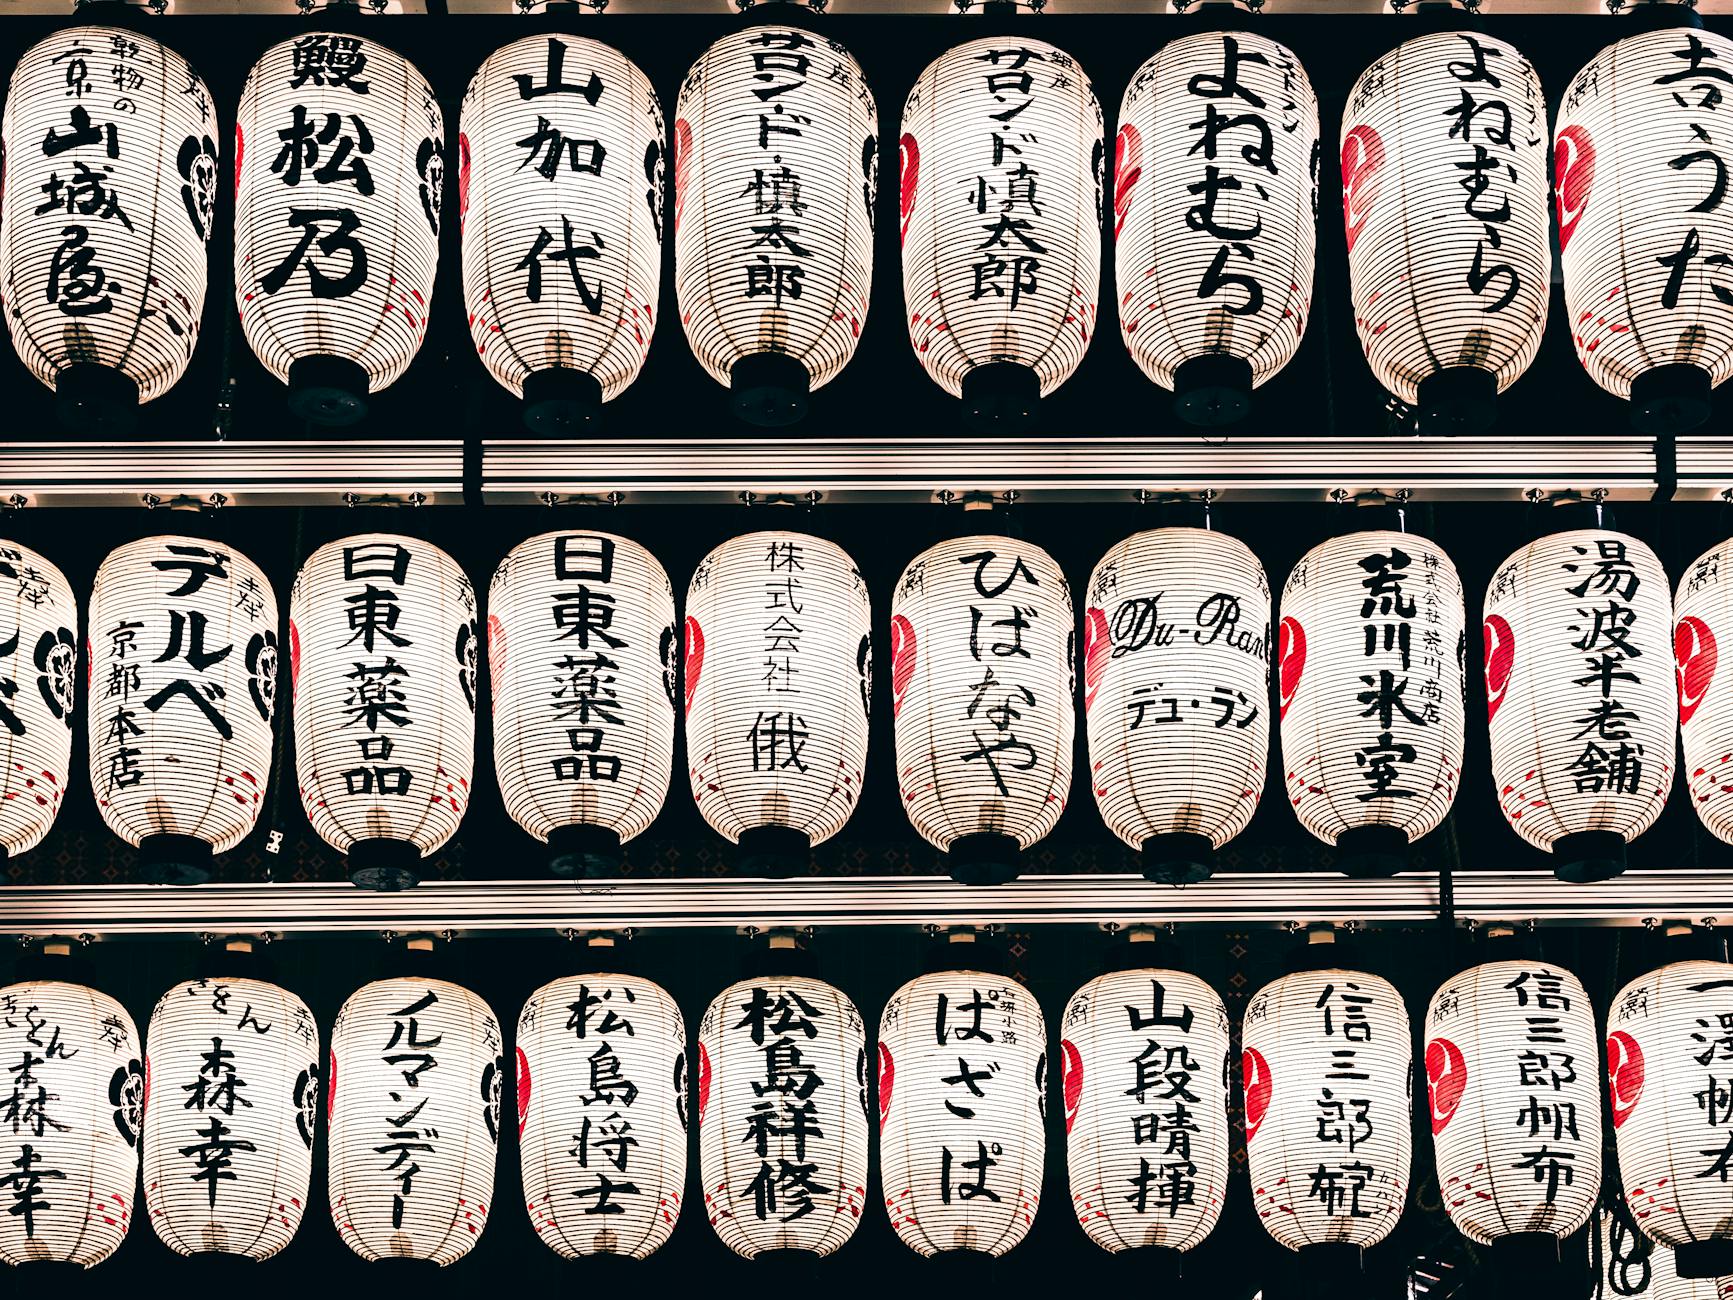 乾物の
京山城屋
鰻松乃
山加代
サロンド・慎太郎
銀座
サロンド慎太郎
よねむら
よねむら
吉うた
デルベ
京都本店
奉
日東薬品
日東薬品
株式会社 俄
ひばなや
Du-Ran
デュ・ラン
株式会社 荒川商店
荒川氷室
湯波半老舗
ぎをん
森幸
ぎをん
森幸
ノルマンディー
松島将士
松島祥修
ぱざぱ
山段晴揮
信三郎
信三郎帆布